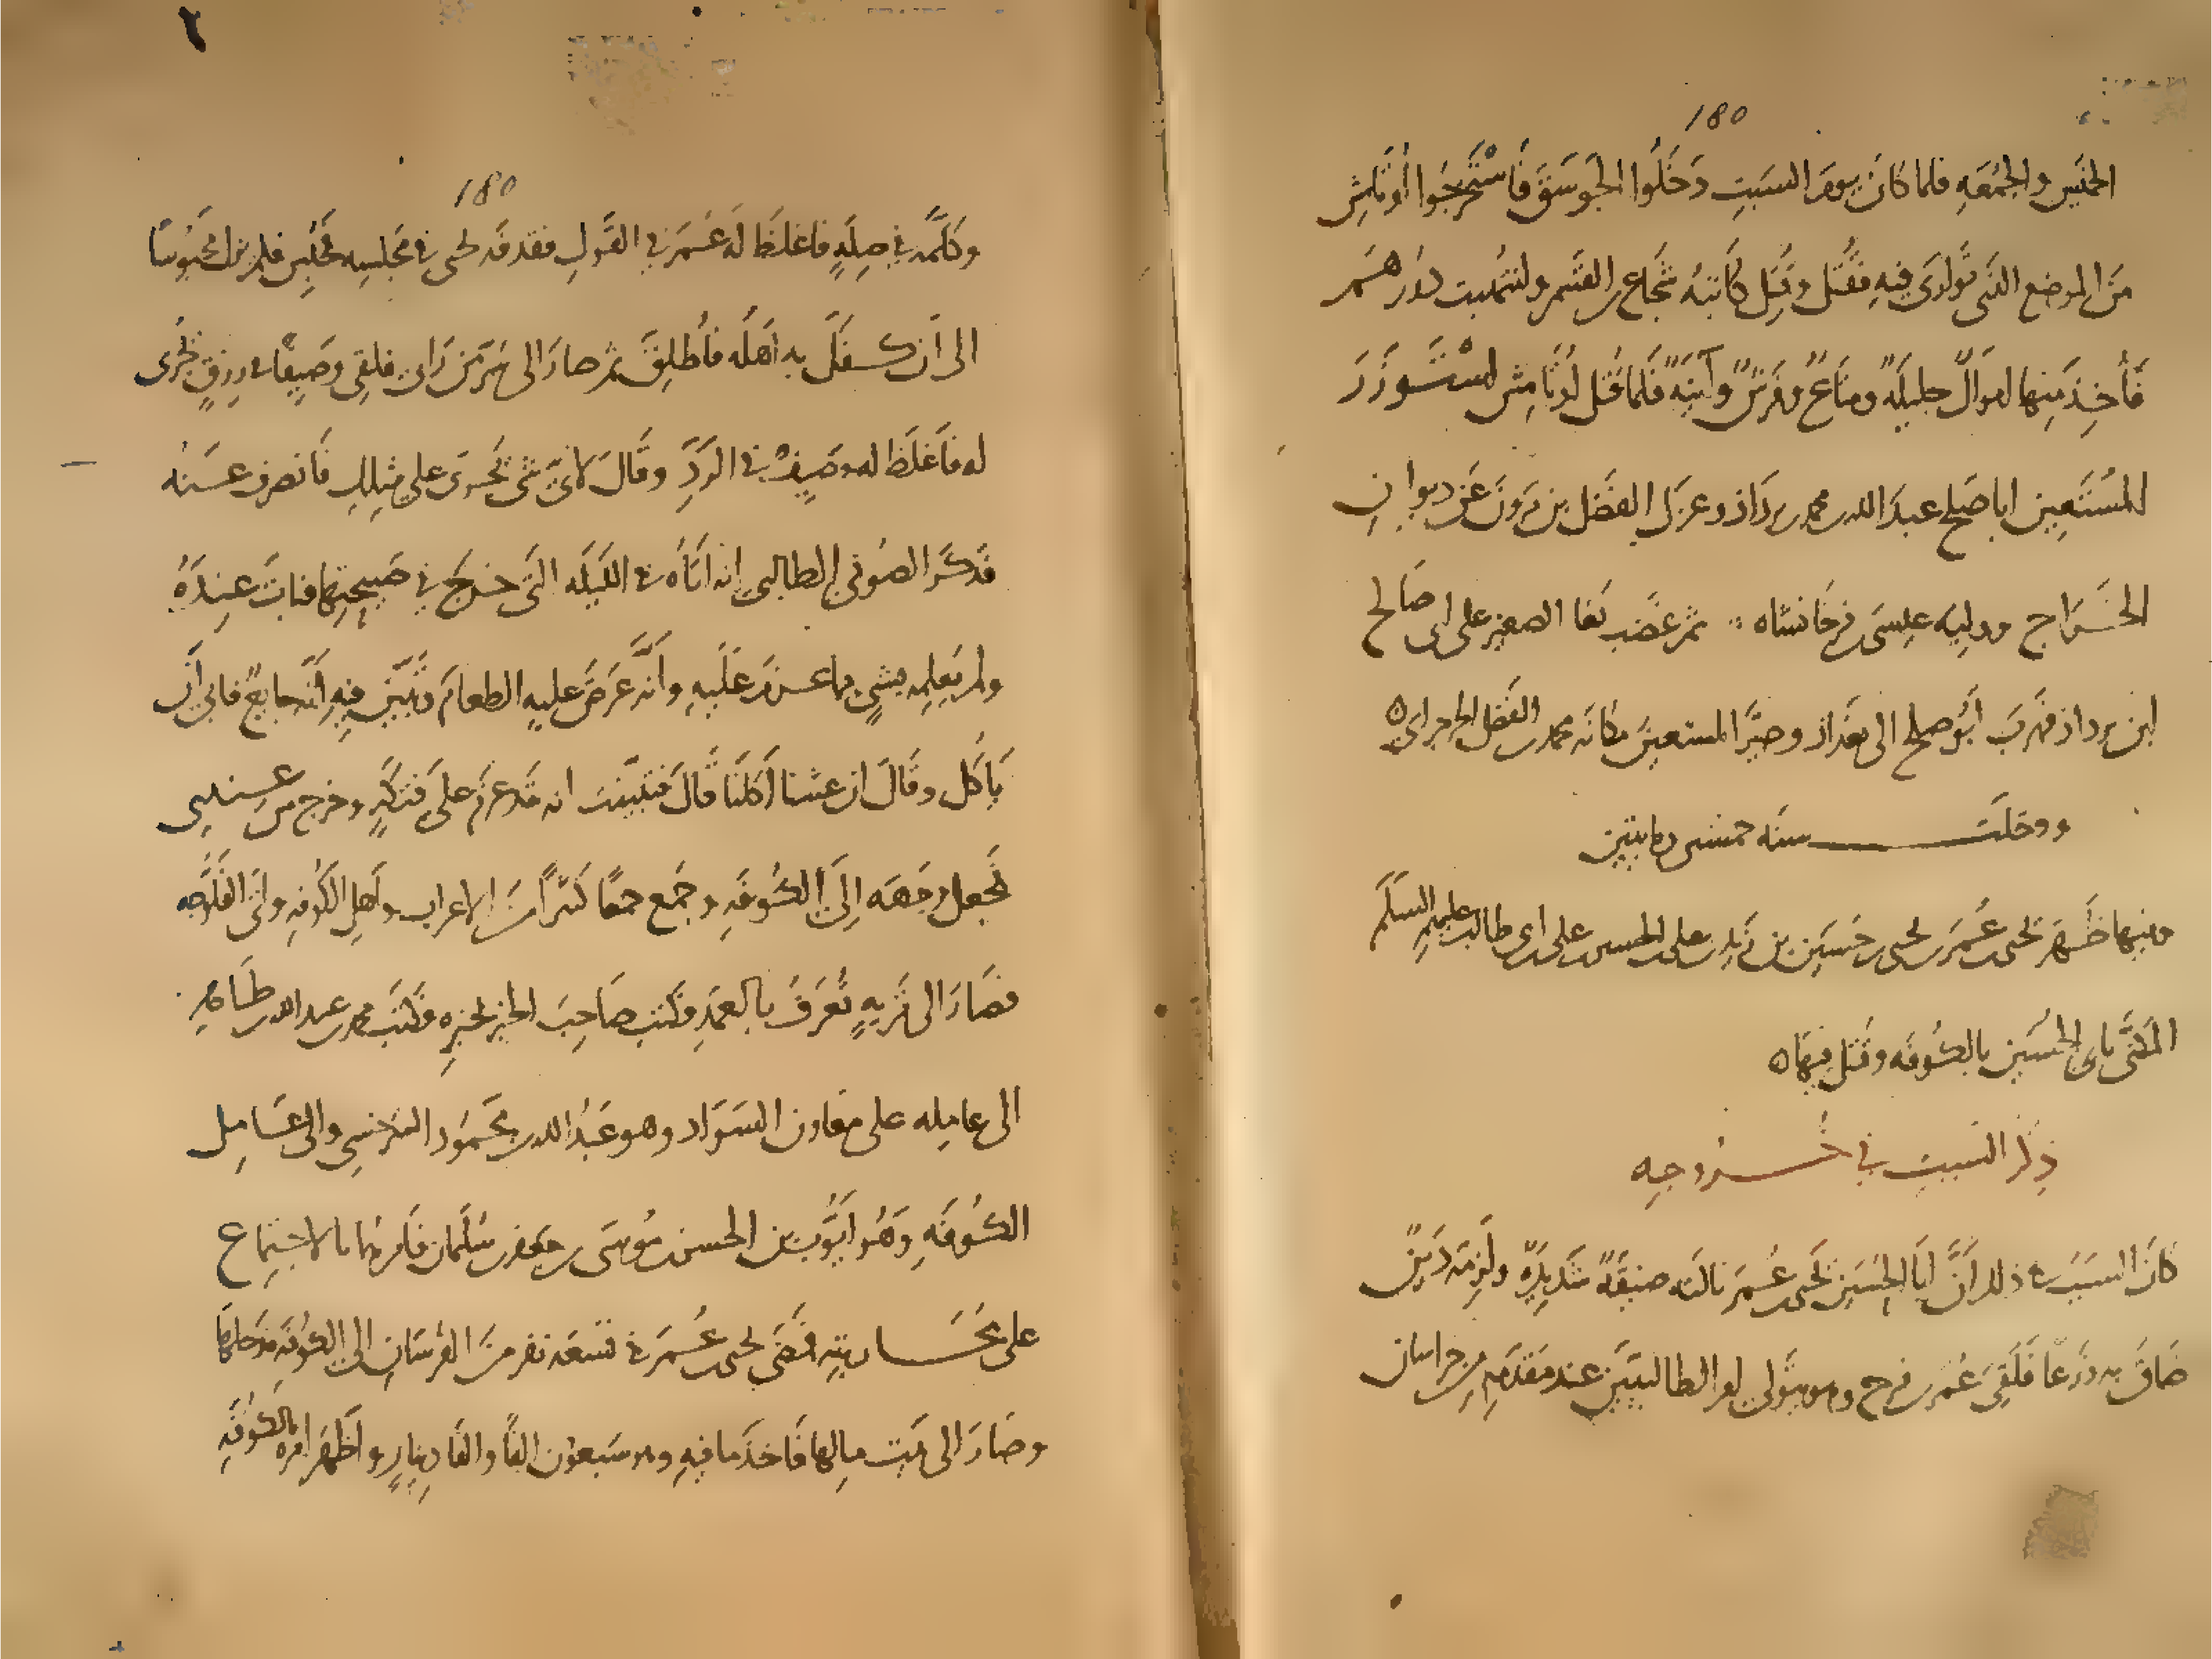 180
الخميس والجمعه فلما كان يوم السبت دَخَلُوا الجوسَقَ فَاسْتَخرَجُوا أُوتامش
مِنَ الموضع الذى تَوارَى فيهِ فقُتل وقُتِل كاتبُه شجاع بن القسم وانتُهبت دُورهم
فأُخِذَ مِنها اموالٌ جليلَةٌ ومتاعٌ وفرشٌ وآنيةٌ فلما قُتل اوتامش استَوزَرَ
المستعين ابا صلح عبدَ الله بن محمد بن يزداذ وعزل الفضل بن مرون عن ديوان
الخراج ووليه عيسى بن فرخانشاه ثم غضب بُغا الصغير على ابى صالح
ابن يزداذ فهرب ابو صلح الى بغداذ وصيَّر المستعين مكانه محمد بن الفضل الجرجراى
ودخلت سنه خمسين ومايتين
وفيها ظهر يحيى بن عُمَر بن يحيى بن حُسَين بن زَيد بن على بن الحسين بن على بن ابى طالب عليهم السلم
المكنَّى بابى الحُسَين بالكوفه وقُتل فيها
ذِكر السبب فى خُروجِه
كان السبب فى ذلك أنَّ ابا الحُسَين يَحيى بن عُمَر نالته ضيقةٌ شديدةٌ ولزمه دَينٌ
ضاقَ به ذَرعًا فَلَقِىَ عُمَر بن فرج وهو يتولى امر الطالبيين عند مَقدمِهِ من خراسان
180
وكلّمه فى صِلَةٍ فاغلظَ له عُمَر فى القول فقذفه يحيى فى مجلسه فحُبِس فلم يزل محبوسًا
الى أن كفَل به أهله فأُطلِقَ ثم صارَ الى سُرَّ من رأى فلقى وَصِيفًا فى رزقٍ يُجرى
له فأغلَظَ له وصيفٌ فى الرَدِّ وقَالَ لاىّ شىٍ يُجرى على مثلك فَانصرف عنه
فذكر الصوفى الطالبى انه أتاهُ فى الليله التى خرج فى صَبيحتِها فباتَ عندَهُ
ولم يُعلِمه بشىٍ مما عزمَ عَلَيهِ وأنّه عَرَضَ عليهِ الطعامَ وتبيّن فيهِ أنّه جايعٌ فابى أن
يَاكل وقَالَ ان عشنا أكلنا قالَ فتبيّنت انه قد عزم على فتكةٍ وخرج من عندى
فجعل وجهه إلى الكوفَهِ وجمع جمعًا كثيرًا من الاعراب وأهل الكوفه واتى الفلّوجه
فصارَ الى قريهٍ تُعرَفُ بالعمد فكتب صاحِبَ الخبر بخبره فكتب محمد بن عبد الله بن طاهر
الى عامِله على معاون السَوَاد وهو عَبدُ الله بن محمود السَرخسى والى عامل
الكوفَهِ وهُو أيُّوب بن الحسن بن موسى بن جعفر بن سُلَيمان فأمرهما بالاجتماع
على محاربته فمضى يحيى بن عُمَر فى تسعه نفر منَ الفرسَانِ الى الكوفه فدخلها
وصارَ الى بيت مالها فاخَذَ ما فيهِ وهو سبعون الفًا والفا دينارٍ واظهَر امره بالكوفَهِ